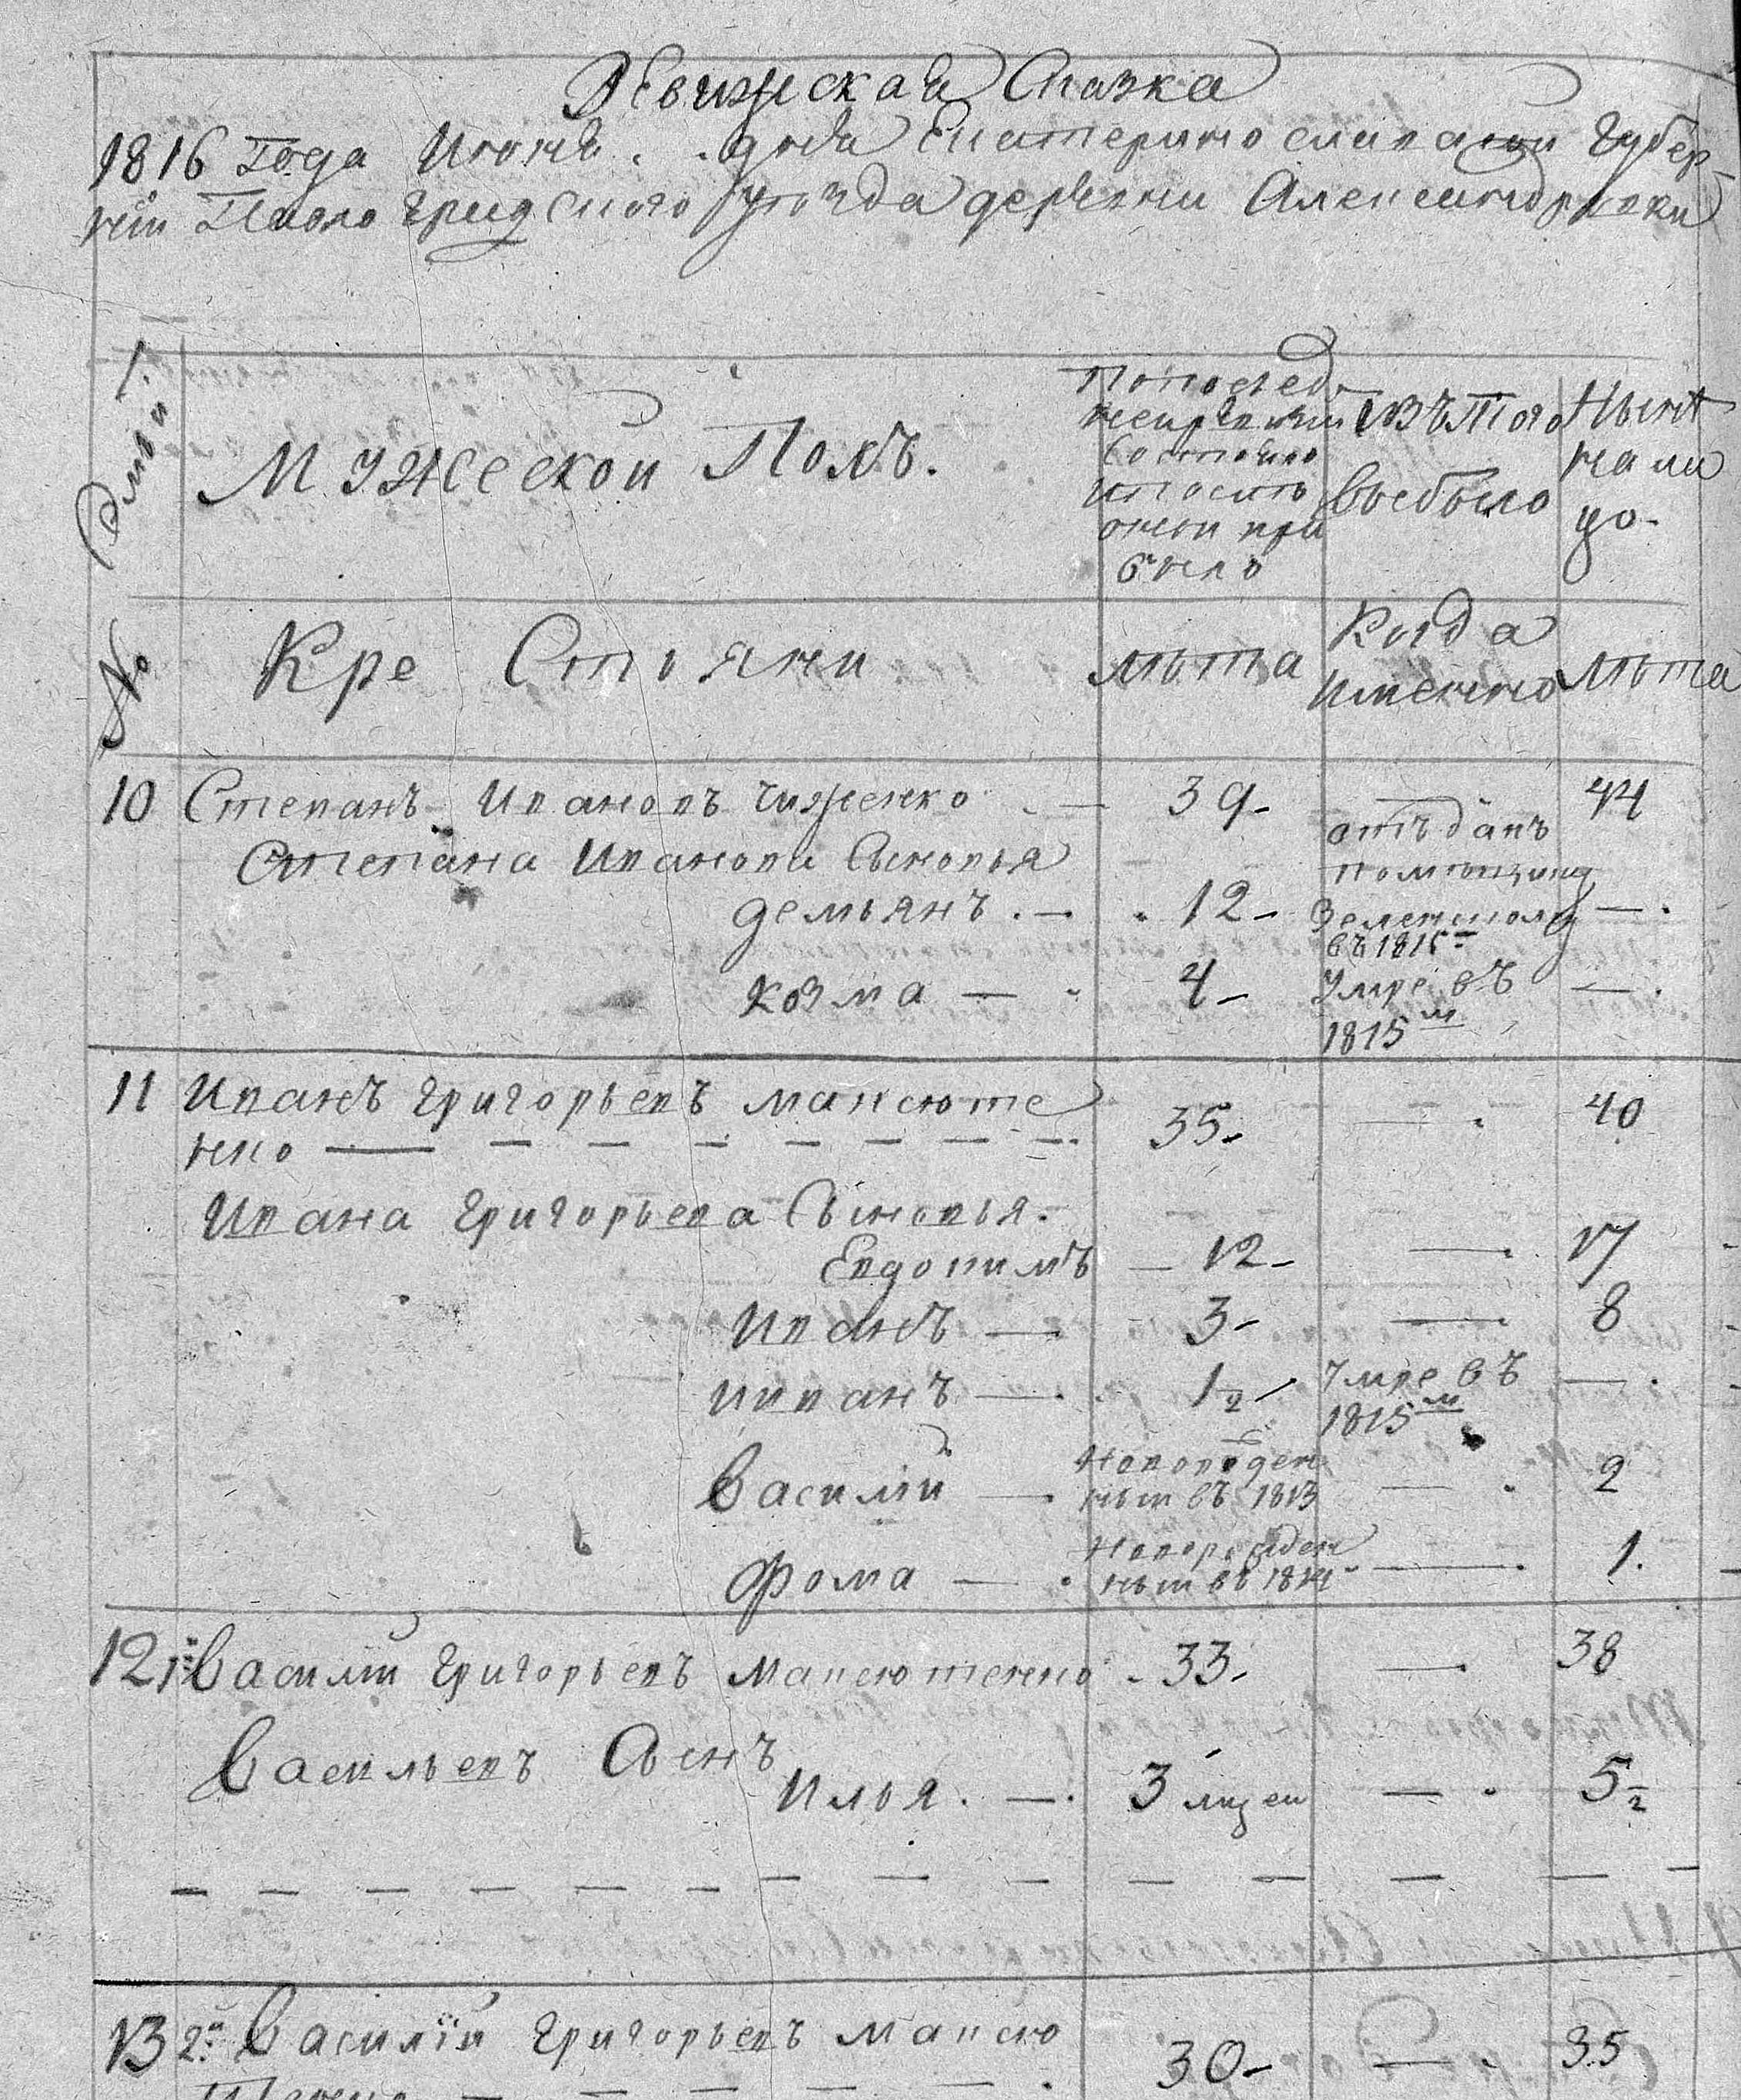 Ревижская Сказка
1816 Года Июня . . дня Екатеринославской Губер
нїи Павлоградского уѣзда деревни Александровки
Семьи
Мужеской Полъ.
Попослед
ней ревизїи
состояло
и после
оной при
было
Изъ того
выбыло
Ныне
нали
цо.
№
Крестьяни
лѣта
Когда
именно
лѣта
10 Степанъ Ивановъ Чиженко — 39 — 44
Степана Иванова Сыновья
Демьянъ . — . 12 отъданъ
помѣщику
въ 1815 — .
Козма — . 4 Умре въ
1815м — .
11 Иванъ Григорьевъ Мансюте
нко — — — — — — — — 35. — . 40
Ивана Григорьева Сыновья.
Евдокимъ — 12 — . 17
Иванъ — 3 — 8
Иванъ — . 1/2 Умре въ
1815м — .
Василїй — . Новорожден
ный въ 1813 — . 2
Фома — . Новорожден
ный въ 1814 — . 1.
12 1й Василїй Григорьевъ Мансютенко . 33. — . 38
Васильевъ Сынъ
Илья. — . 3 мцеи — . 5 1/2
— — — — — — — — — — — — — —
13 2й Василїй Григорьевъ Мансю
тенко — — — — — . 30 — . 35